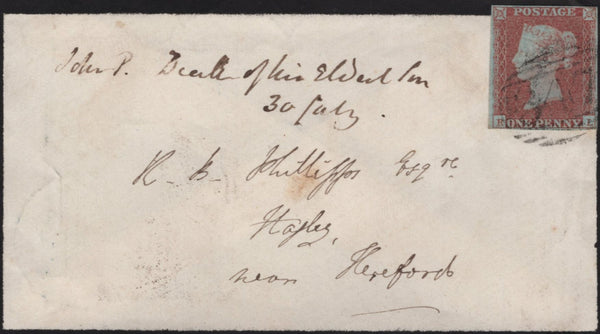 POSTAGE
ONE PENNY
John P. Death of his Eldest Son
30 July.
R. B. Phillipps Esqre
near Hereford